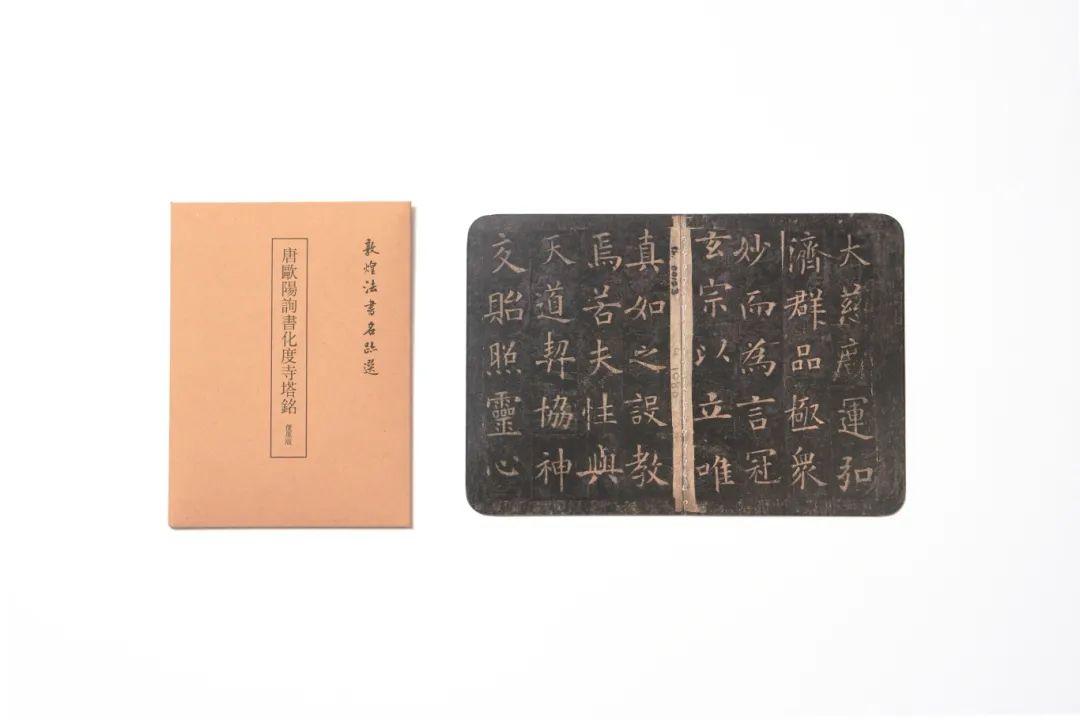 敦煌法書名跡選
唐歐陽詢書化度寺塔銘 復原版
大慈廣運弘
濟群品極衆
妙而為言冠
玄宗以立唯
真如之設教
焉若夫性與
天道契協神
交貽照靈心